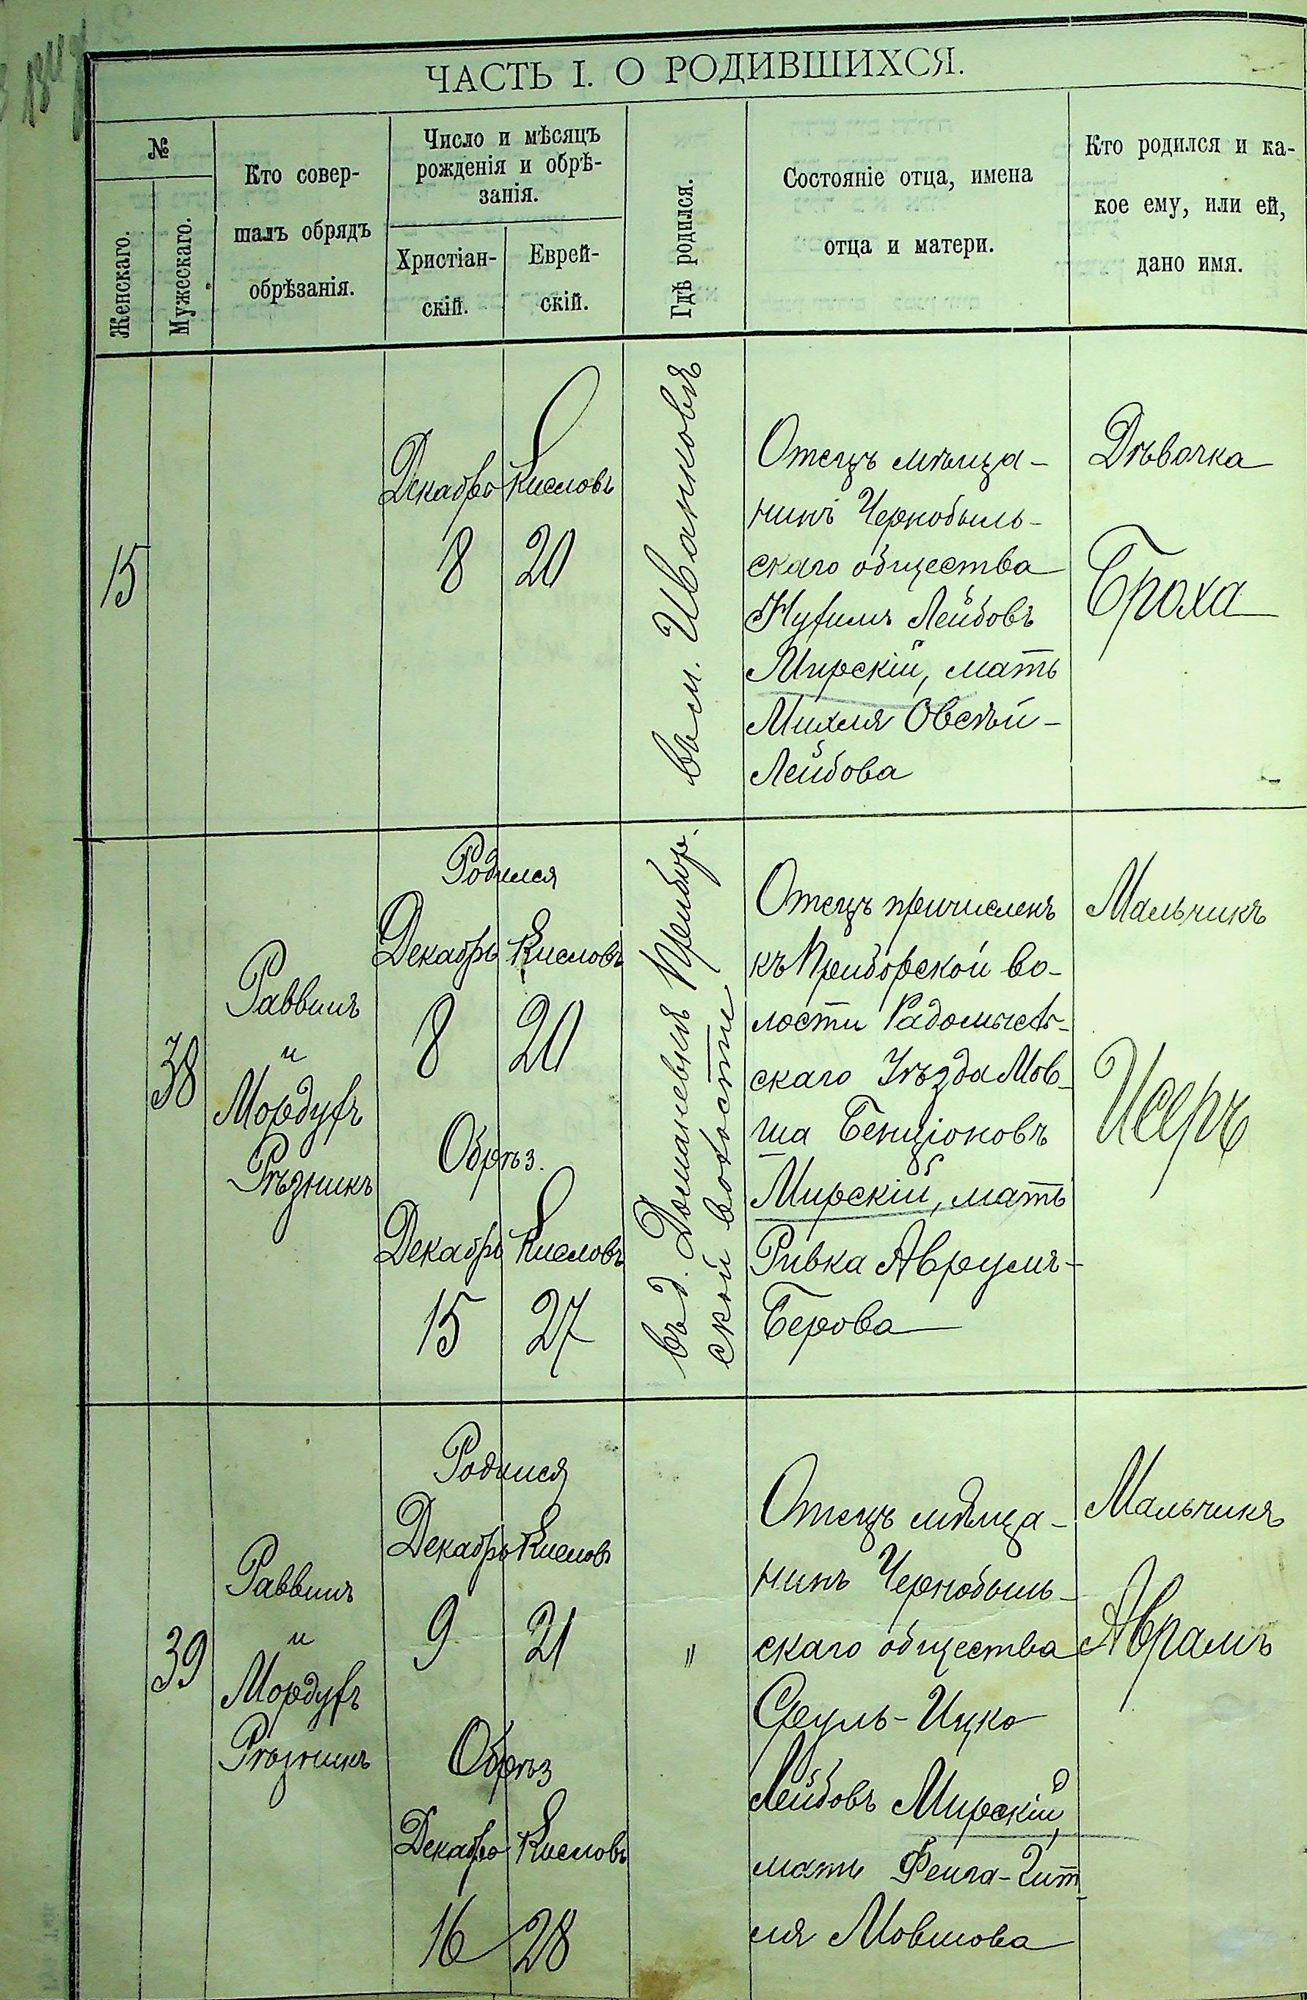 ЧАСТЬ I. О РОДИВШИХСЯ.
№
Женскаго.
Мужескаго.
Кто совер-
шалъ обрядъ
обрѣзанія.
Число и мѣсяцъ
рожденія и обрѣ-
занія.
Христіан-
скій.
Еврей-
скій.
Гдѣ родился.
Состояніе отца, имена
отца и матери.
Кто родился и ка-
кое ему, или ей,
дано имя.
15
Декабрь
8
Кисловъ
20
въ м. Иванковѣ
Отецъ мѣща-
нинъ Чернобыль-
скаго общества
Нухимъ Лейбовъ
Мирскій, мать
Михля Овсѣй-
Лейбова
Дѣвочка
Броха
38
Раввинъ
и
Мордухъ
Рѣзникъ
Родился
Декабрь Кисловъ
8 20
Обрѣз.
Декабрь Кисловъ
15 27
въ д. Домановкѣ Прибор-
ской волости
Отецъ причисленъ
къ Приборской во-
лости Радомысль-
скаго Уѣзда Мов-
ша Бенціоновъ
Мирскій, мать
Ривка Аврумъ-
Берова
Мальчикъ
Исеръ
39
Раввинъ
и
Мордухъ
Рѣзникъ
Родился
Декабрь Кисловъ
9 21
Обрѣз
Декабрь Кисловъ
16 28
"
Отецъ мѣща-
нинъ Чернобыль-
скаго общества
Сруль-Ицко
Лейбовъ Мирскій,
мать Фейга-Гит-
ля Мовшова
Мальчикъ
Аврамъ